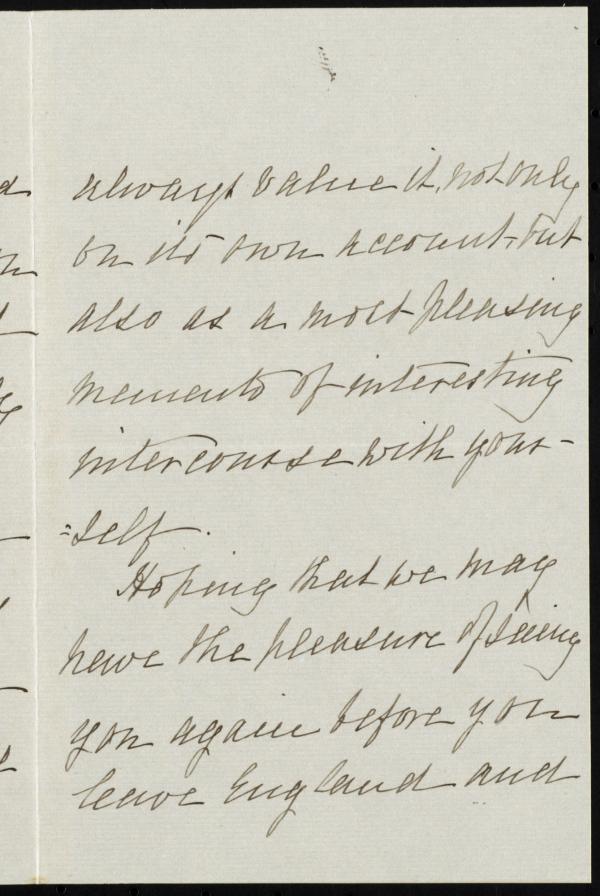 always value it, not only
on its own account, but
also as a most pleasing
memento of interesting
intercourse with your-
=self.
Hoping that we may
have the pleasure of seeing
you again before you
leave England and